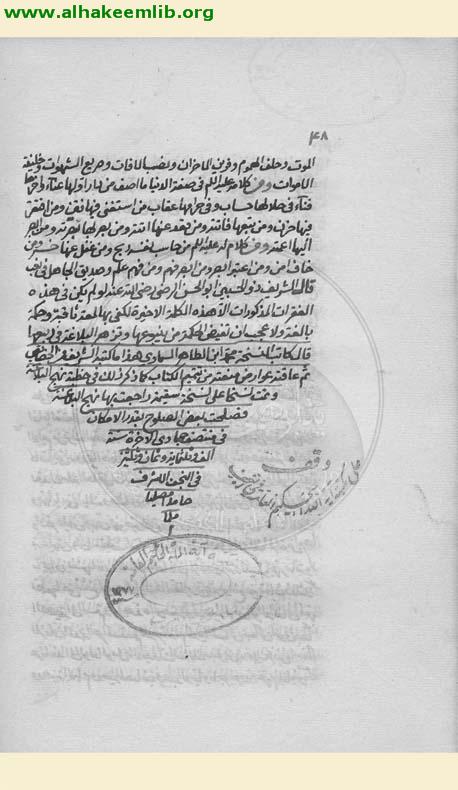 www.alhakeemlib.org
٤٨
الموت وحلف الهموم وقرين الاحزان ونصب الافات وصريع الشهوات وخليفة
الاموات ومن كلامه عليه السلم في صفة الدنيا ما اصف من دار اولها عناء واخرها
فناء في حلالها حساب وفي حرامها عقاب من استغنى فيها فتن ومن افتقر
فيها حزن ومن سعى لها فاتته ومن قعد عنها اتته ومن بصر لها بصرته ومن ابصر
اليها اعمته ومن كلام له عليه السلم من حاسب نفسه ربح ومن غفل عنها خسر ومن
خاف امن ومن اعتبر ابصر ومن ابصر فهم ومن فهم علم وصديق الجاهل في تعب
قال الشريف ذو الحسبين ابو الحسن الرضي رضي الله عنه لو لم يكن في هذه
الفقرات المذكورات الا هذه الكلمة الاخيرة لكفى بها لمعة نافعة وحكمة
بالغة ولا عجب ان تفيض الحكمة من ينبوعها وتزهر البلاغة في ربيعها
قال كاتب النسخة محمد ابن الطاهر السماوي هذا ما كتبه الشريف
ثم عاقته عوارض من تتميم الكتاب كما ذكر ذلك في خطبة نهج البلاغة
وتمت نسخا على نسخة سقيمة راجعت بها نهج البلاغة
فصلحت بعض الصلوح بقدر الامكان
في منتصف جمادى الاخرة سنة
الف وثلثماية وثمان وثلثين
في النجف الاشرف
حامدا مصليا
وقف
على مكتبة آية الله الحكيم العامة